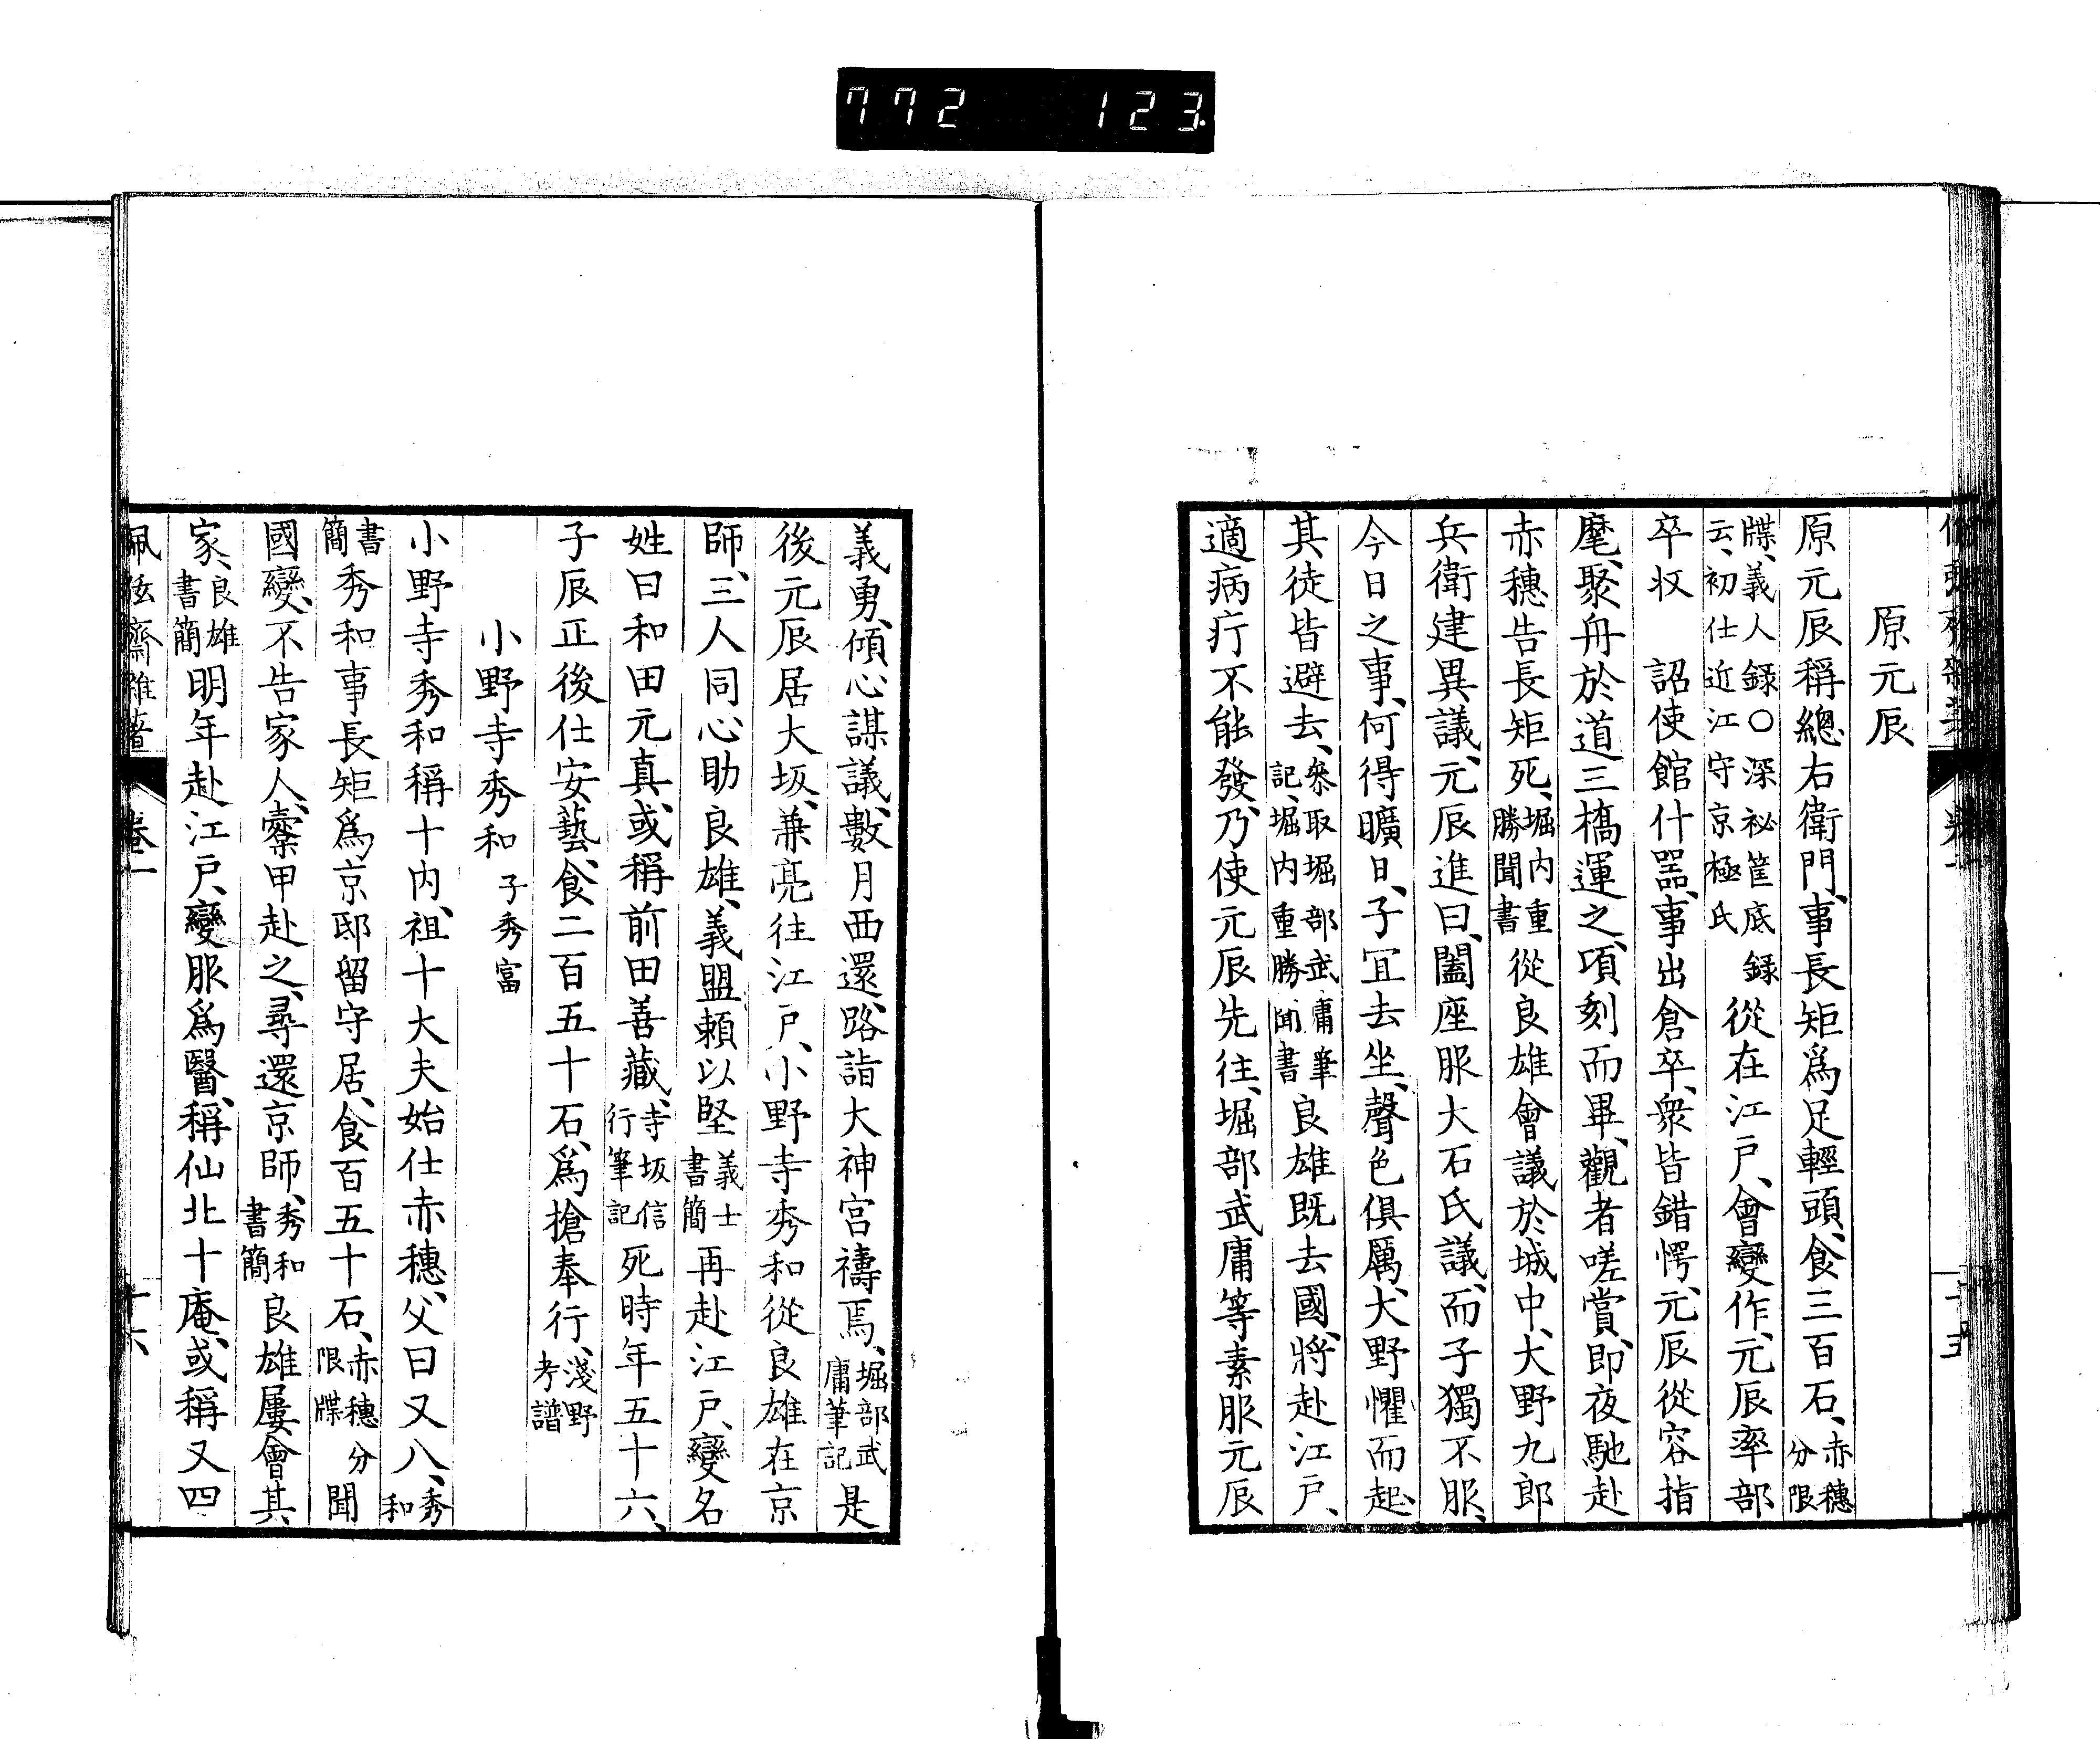 772 123
原元辰
原元辰稱總右衛門、事長矩爲足輕頭、食三百石、赤穗分限
牒、義人録〇深祕筐底録云、初仕近江守京極氏從在江戸、會變作、元辰率部
卒收 詔使館什器、事出倉卒、衆皆錯愕、元辰從容指
麾、聚舟於道三橋運之、項刻而畢、觀者嗟賞、即夜馳赴
赤穗告長矩死、堀内重勝聞書從良雄會議於城中、大野九郎
兵衛建異議、元辰進曰、闔座服大石氏議、而子獨不服、
今日之事、何得曠日、子冝去坐、聲色俱厲、大野懼而起
其徒皆避去、叅取堀部武庸筆記、堀内重勝聞書良雄既去國、將赴江戸、
適病疔不能發、乃使元辰先往、堀部武庸等素服元辰
義勇、傾心謀議、數月西還、路詣大神宮禱焉、堀部武庸筆記是
後元辰居大坂、兼亮往江戸、小野寺秀和從良雄在京
師、三人同心助良雄、義盟賴以堅義士書簡再赴江戸、變名
姓曰和田元真、或稱前田善藏、寺坂信行筆記死時年五十六、
子辰正後仕安藝、食二百五十石、爲搶奉行、淺野考譜
小野寺秀和 子秀富
小野寺秀和稱十内、祖十大夫始仕赤穗、父曰又八、秀和
書簡秀和事長矩爲京邸留守居、食百五十石、赤穗分限牒聞
國變、不告家人、櫜甲赴之、尋還京師、秀和書簡良雄屢會其
家、良雄書簡明年赴江戸、變服爲醫、稱仙北十庵、或稱又四
佩弦齋雜著 卷一 十六